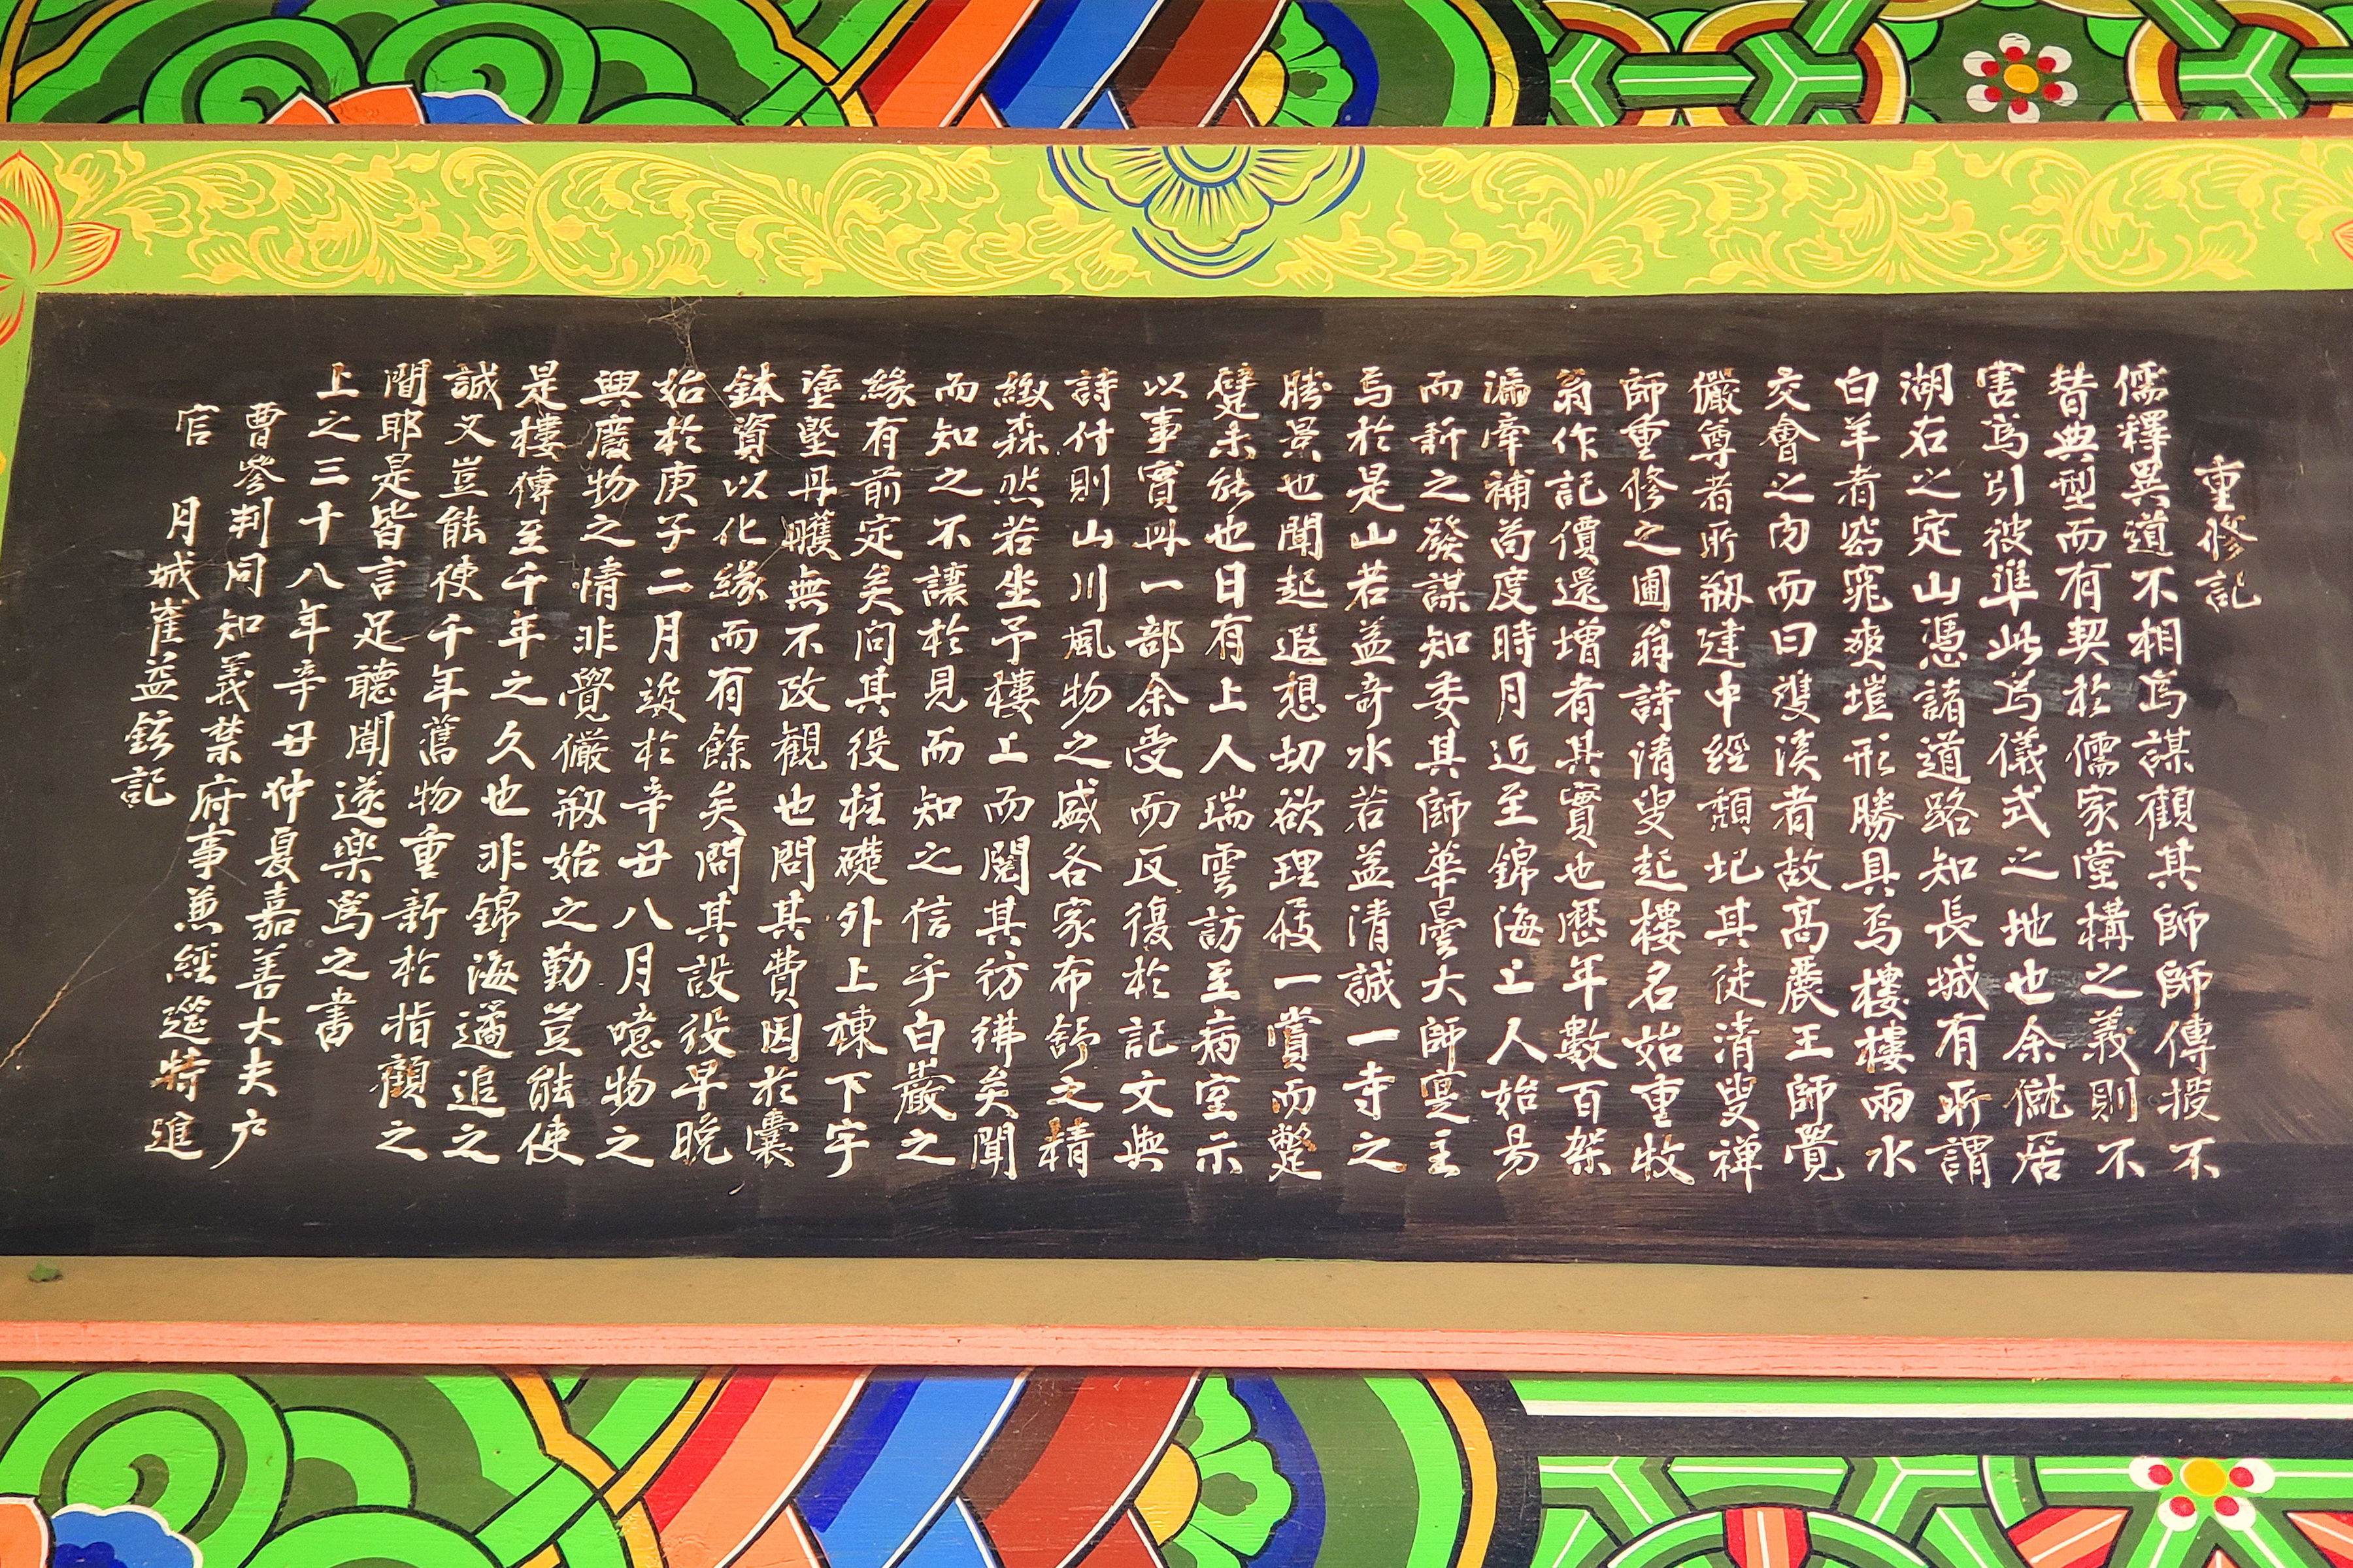 重修記
儒釋異道不相爲謀顧其師師傳授不
替典型而有契於儒家堂構之義則不
害爲引彼準此爲儀式之地也余僦居
湖右之定山憑諸道路知長城有所謂
白羊者窈窕爽塏形勝具焉樓樓兩水
交會之內而曰雙溪者故高麗王師覺
儼尊者所刱建中經頹圮其徒清叟禅
師重修之圃翁詩清叟起樓名始重牧
翁作記價還增者其實也歷年數百架
漏牽補苟度時月近至錦海上人始易
而新之發謀知委其師華曇大師寔主
焉於是山若益奇水若益清誠一寺之
勝景也聞起遐想切欲理屐一賞而蹩
躄未能也日有上人瑞雲訪至病室示
以事實冊一部余受而反復於記文與
詩什則山川風物之盛各家布舒之精
緻森然若坐予樓上而閱其彷彿矣聞
而知之不讓於見而知之信乎白巖之
緣有前定矣问其役柱礎外上棟下宇
塗墍丹雘無不改観也問其費因於囊
鉢資以化緣而有餘矣問其設役早晩
始於庚子二月竣於辛丑八月噫物之
與廢物之情非覺儼刱始之勤豈能使
是樓傳至千年之久也非錦海遹追之
誠又豈能使千年舊物重新於指顧之
間耶是皆言足聽聞遂樂爲之書
上之三十八年辛丑仲夏嘉善大夫户
曹參判同知義禁府事兼經筵特進
官　月城崔益鉉記